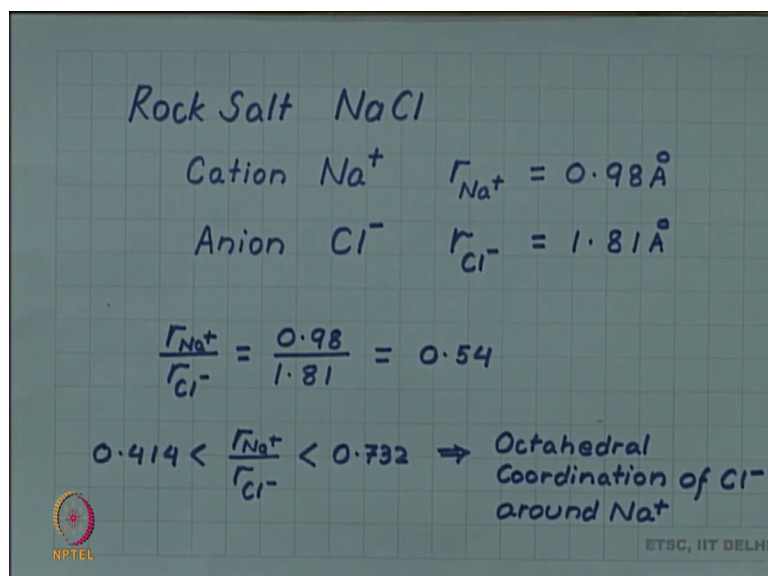 Rock Salt NaCl
Cation Na⁺ r_Na⁺ = 0.98Å
Anion Cl⁻ r_Cl⁻ = 1.81Å
r_Na⁺/r_Cl⁻ = 0.98/1.81 = 0.54
0.414 < r_Na⁺/r_Cl⁻ < 0.732 ⇒ Octahedral
Coordination of Cl⁻
around Na⁺
NPTEL
ETSC, IIT DELHI